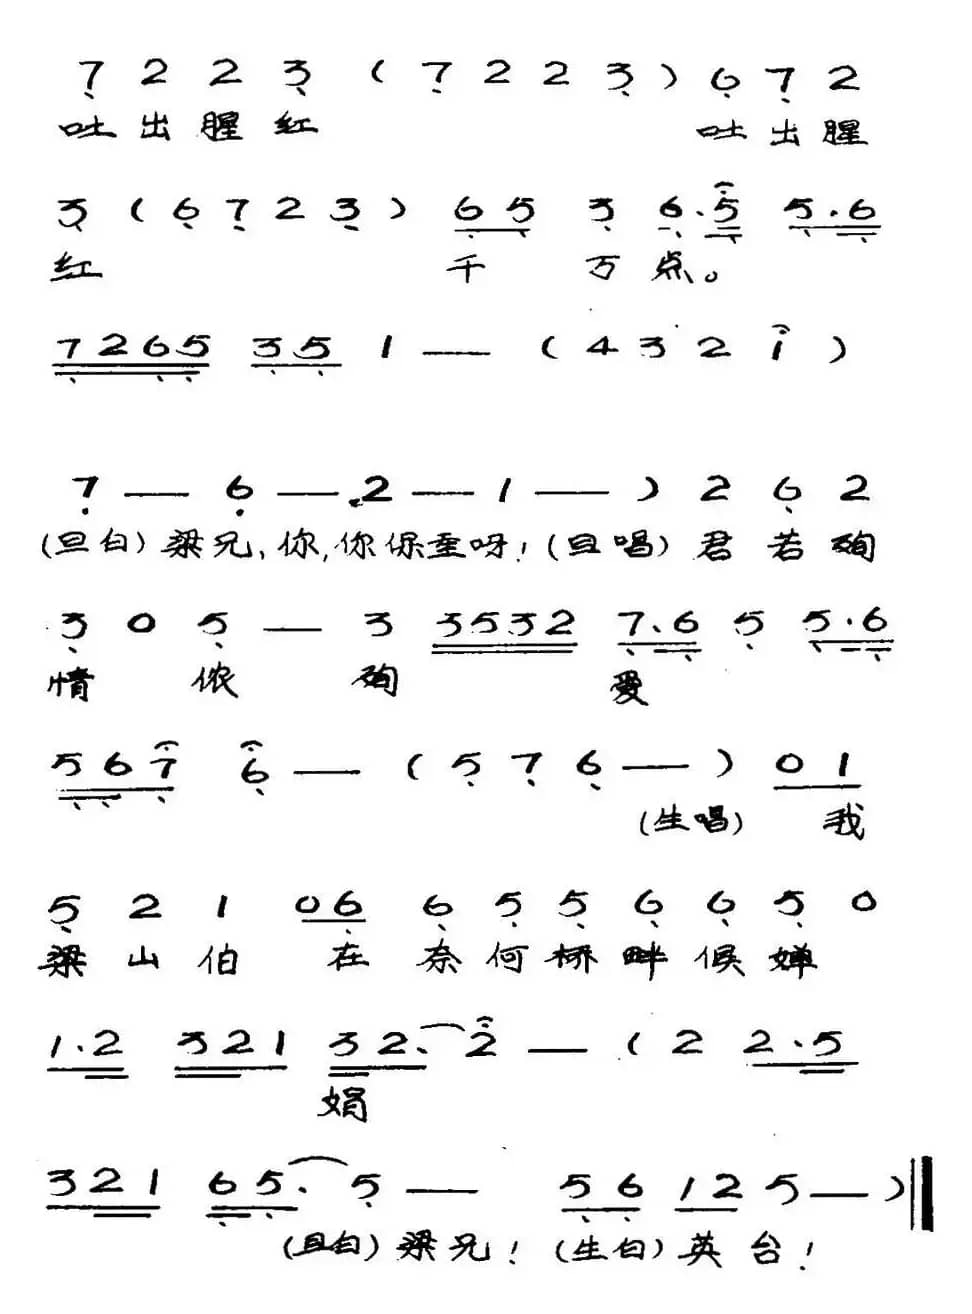 7 2 2 3 ( 7 2 2 3 ) 6 7 2
吐出腥红 吐出腥
3 ( 6 7 2 3 ) 6 5 3 6.5 5.6
红 千万点。
7265 35 1 — ( 4 3 2 i )
7 — 6 — 2 — 1 — ) 2 6 2
(旦白) 梁兄、你,你保重呀! (旦唱) 君若殉
3 0 5 — 3 3532 7.6 5 5.6
情 侬 殉 爱
567 6 — ( 5 7 6 — ) 0 1
(生唱) 我
5 2 1 06 6 5 5 6 6 5 0
梁山伯 在奈何桥畔候婵
1.2 321 32. 2 — ( 2 2.5
娟
321 65. 5 — 56 12 5 — )
(旦白) 梁兄! (生白) 英台!